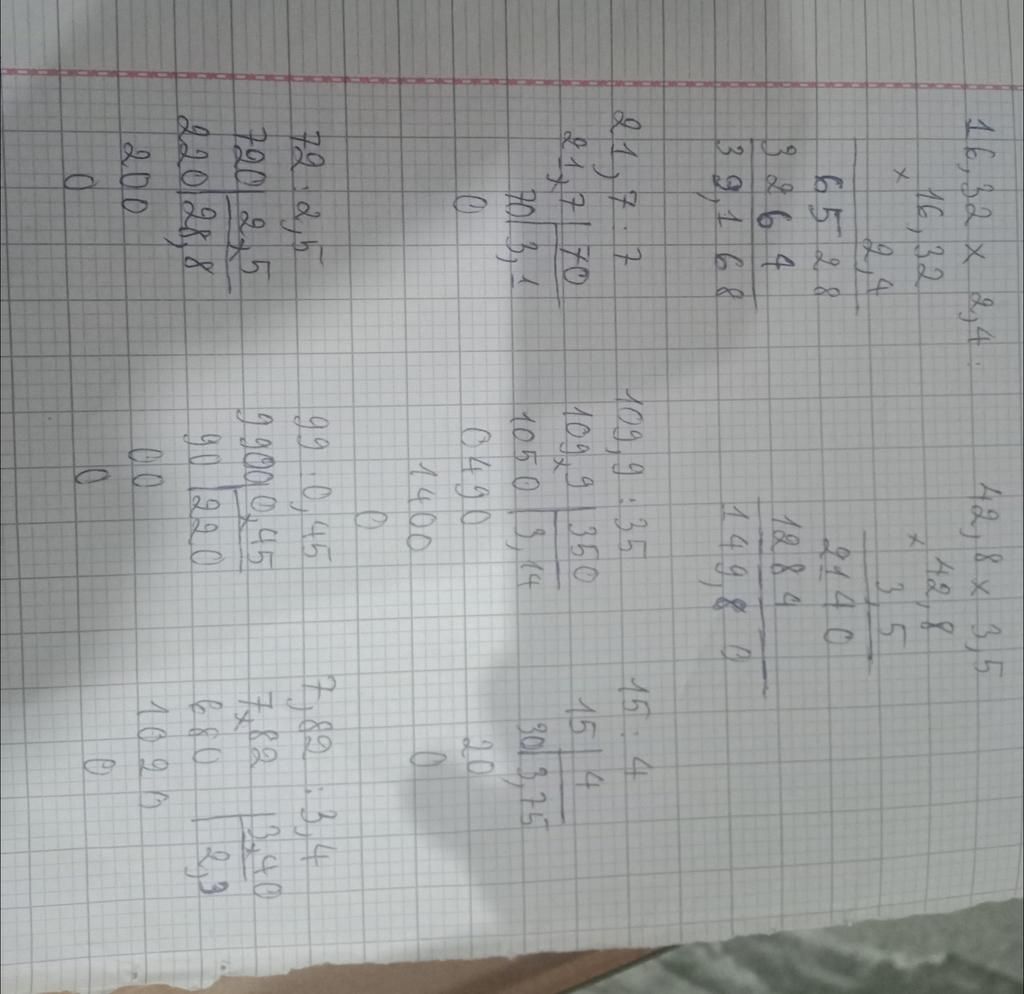 16,32 x 2,4.
16,32
x 2,4
6528
3264
39,168
42,8 x 3,5
42,8
x 3,5
2140
1284
149,80
21,7 : 7
21,7 70
70 3,1
0
109,9 : 35
109,9 350
1050 3,14
0490
1400
0
15 : 4
15 4
30 3,75
20
0
72 : 2,5
720 2,5
220 28,8
200
0
99 : 0,45
9900 0,45
90 220
00
0
7,82 : 3,4
7,82 3,40
680 2,3
1020
0